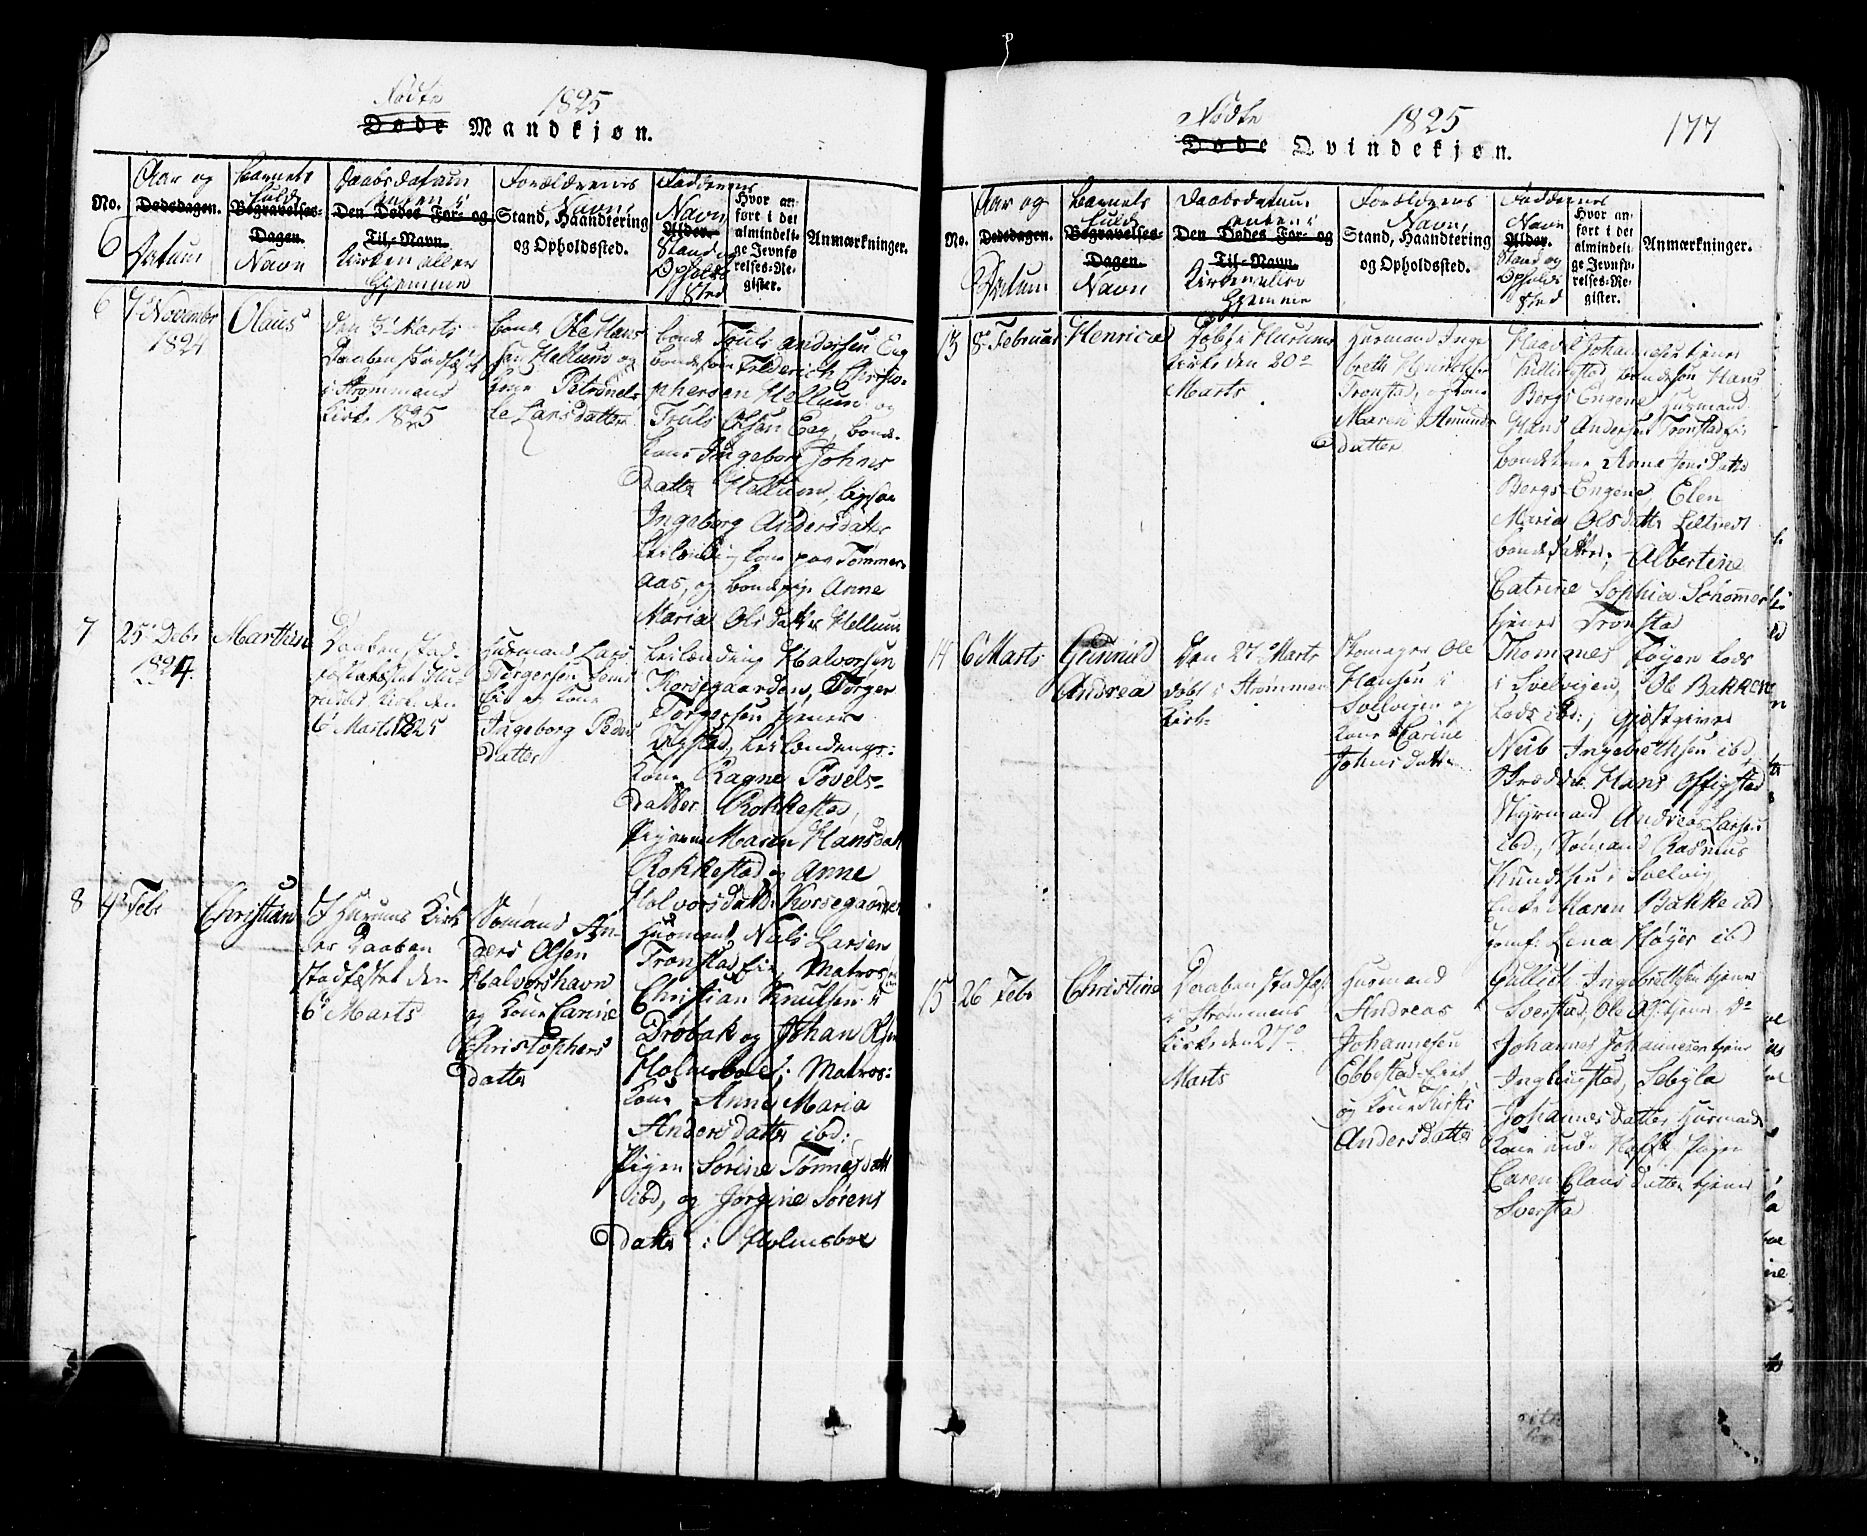 Födte 1825
Døde Mandkjøn.
No.
Aar og
Dødsdagen.
Datum
Barnets
fulde
Begravelses-
Dagen.
Navn
Daabsdatum
enten i
Den Dødes For- og
Til-Navn.
Kirken eller
Hjemme
Forældrenes
Navn,
Stand, Haandtering
og Opholdssted.
Faddernes
Navn
Alder.
Stand og
Opholds
Sted
Hvor an-
ført i det
almindeli-
ge Jevnfø-
relses-Re-
gister.
Anmærkninger.
6
7de November
1824
Olaus
den 6te Marts
Daaben stadfæst
i Strømmens
Kirke 1825
bonde Ole Hans
sen Hellum og
Kone Petronel-
le Larsdatter
bonde Truls Andersen Eeg
bondesøn Frederich Christo-
phersen Hellum og
Truls Olsen Eeg, bonde-
kone Ingeborg Johns
Datter Hellum,
Ingeborg Andersdatter
Leilændings kone paa Tømmer-
aas, og bondepige Anne
Maria Olsdatter Hellum
7
25 Debr
1824.
Marthin
Daaben stad-
fæstet Hu-
rums Kirke den
6 Marts 1825
Husmand Lars
Torgersen
Eie og Kone
Ingeborg Peders
datter
Leilænding Halvorsen
Korsegaarden, Torger
Torgersen tjener
Leilændings:
kone Ragne Povels-
datter Rokkestad,
Pigerne Maren Hansdatt
Rokkestad og Anne
Halvorsdatter Korsegaarden
8
4de Febr
Christian
I Hurums Kirk
er Daaben
stadfæstet den
6te Marts
Sømand An-
ders Olsen
Halvorshavn
og Kone Carine
Christophers
datter
Husmand Niels Larsen
Tronstad Eie, Matros
Christian Knutsen i
Drøbak og Johan Olsen
Holmsboe; Matros:
kone Anne Maria
Andersdatter ibd:
Pigen Sorine Tønnesdatt
ibd, og Jørgine Sørens
Datter i Holmsboe
Födte 1825 177
Døde Qvindekjøn.
No.
Aar og
Dødsdagen.
Datum
Barnets
fulde
Begravelses-
Dagen.
Navn
Daabsdatum
enten i
Den Dødes For- og
Til-Navn.
Kirken eller
Hjemme
Forældrenes
Navn,
Stand, Haandtering
og Opholdssted.
Faddernes
Navn
Alder.
Stand og
Opholds
Sted
Hvor an-
ført i det
almindeli-
ge Jevnfø-
relses-Re-
gister.
Anmærkninger.
13
8de Februar
Henrica
Døbt i Hurums
Kirke den 20de
Marts
Husmand Inge
breth Henrichs
Tronstad, og Kone
Maren Amunds
datter
Johannesen tjener
Killingstad bondesøn Hans
Bergs-Engene Husmand
Hans Andersen Tronstad Eie
bondekone Anne Jensdatter
Bergs-Engene, Elen
Maria Olsdatter Liltvedt
bondedatter; Albertine
Catrine Sophia
tjener Tronsta
14
6 Marts
Gunnild
Andrea
den 27de Marts
døbt i Strømmens
Kirke
Skomager Ole
Hansen i
Svelvigen og
Kone Carine
Johnsdatter
Thommes Høyer Lods
i Svelvigen, Ole Bakken
Lods ibd:, Gjestgiver
Neib Ingebrethsen ibd,
Skrædder Hans
Styrmand Andreas Larsen
ibd:, Sømand Rasmus
Knudsen i Svelvig
Enke Maren Bakke ibd
Jomf: Lena Høyer ibd
15
26 Febr
Christine
Daaben stadfæst
i Strømmens
Kirke den 27de
Marts
Husmand
Andreas
Johannesen
Ebbestad-Eiet
og Kone Kirsti
Andersdatter
Gullich Ingebrethsen tjener
Sverstad, Ole Ols: tjener do
Johannes Johannesen tjener
Inglingstad, Sebyla
Johannesdatter Husmands
kone Pigen
Caren Clausdatter tjener
Sversta